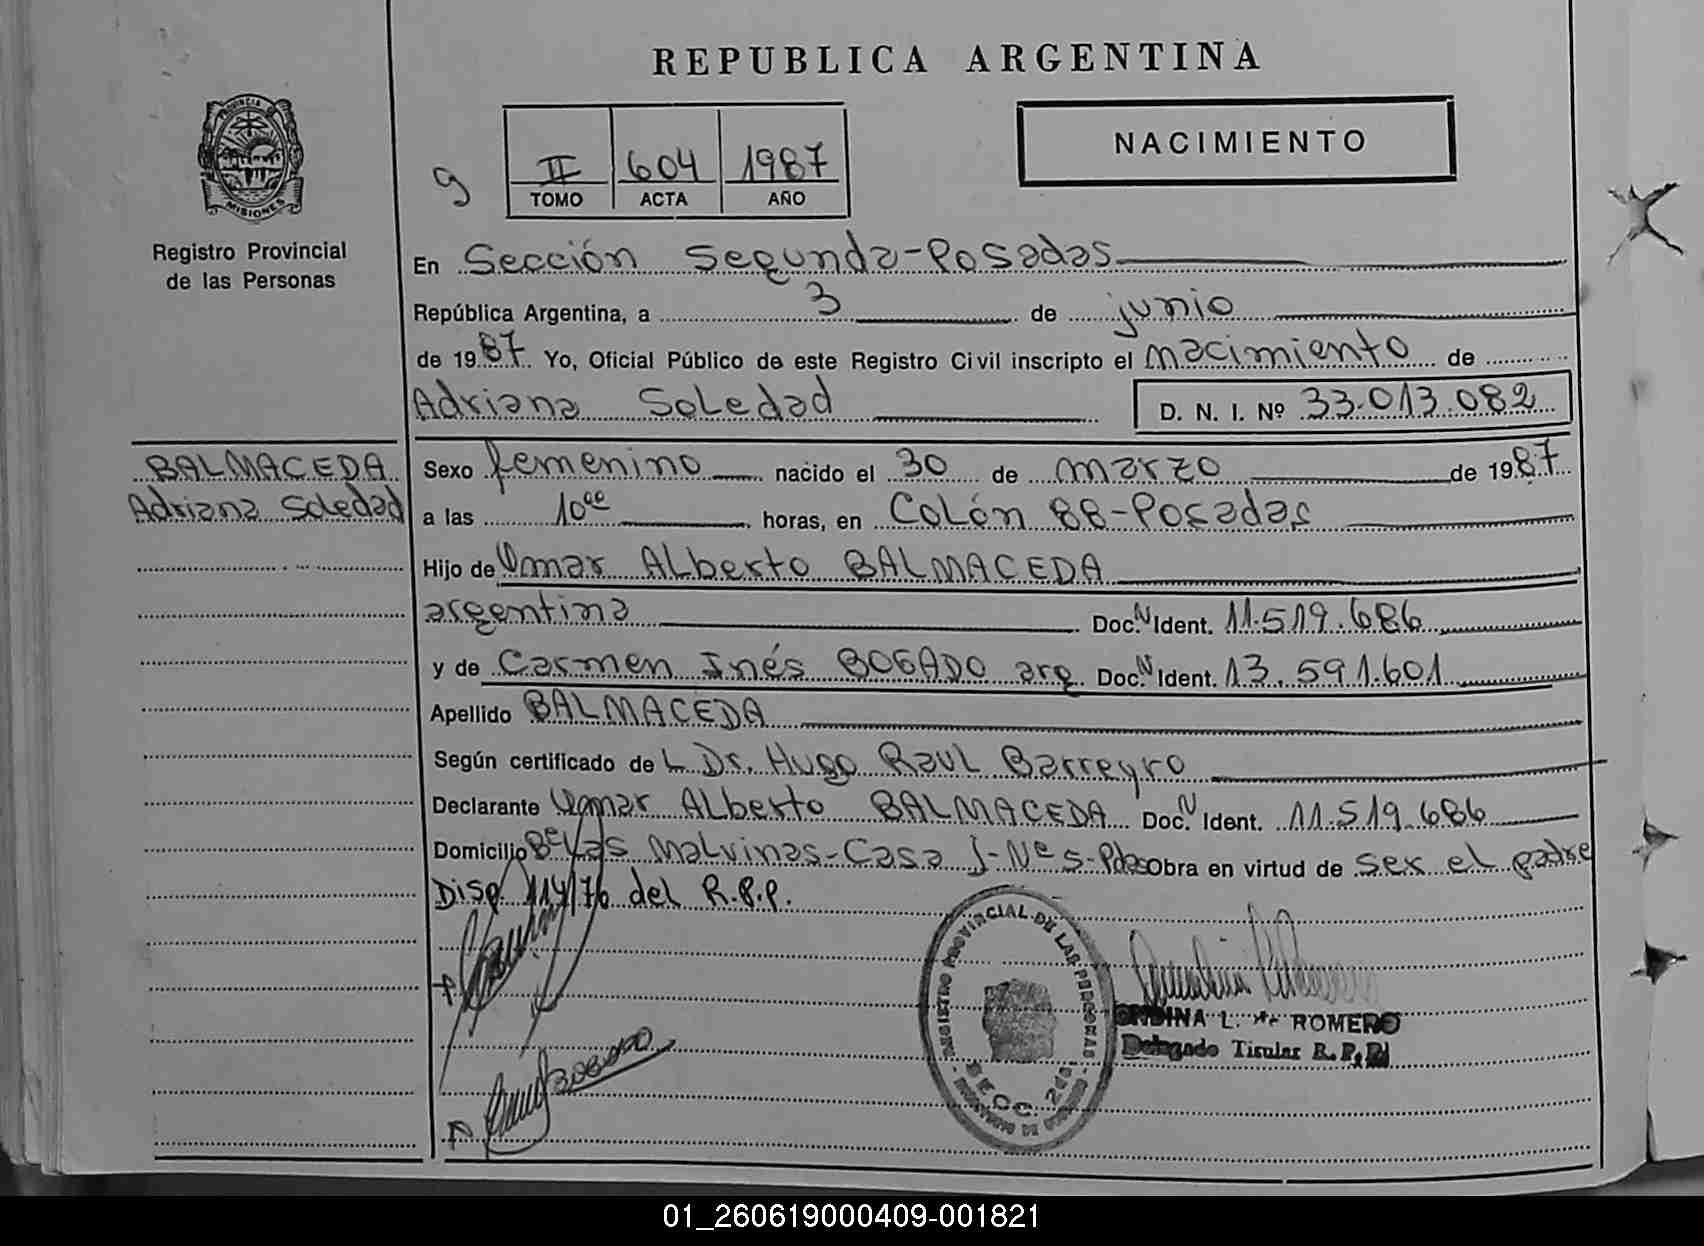 REPUBLICA ARGENTINA
PROVINCIA DE
MISIONES
Registro Provincial
de las Personas
9
II 604 1987
TOMO ACTA AÑO
NACIMIENTO
En Sección Segunda-Posadas
República Argentina, a 3 de junio
de 1987. Yo, Oficial Público de este Registro Civil inscripto el nacimiento de
Adriana Soledad D. N. I. Nº 33.013.082
BALMACEDA
Adriana Soledad
Sexo femenino nacido el 30 de marzo de 1987
a las 10 horas, en Colón 88-Posadas
Hijo de Omar Alberto BALMACEDA
argentina Doc. N Ident. 11.519.686
y de Carmen Inés BOGADO arg Doc. N Ident. 13.591.601
Apellido BALMACEDA
Según certificado de L Dr. Hugo Raul Barreyro
Declarante Omar Alberto BALMACEDA Doc. N Ident. 11.519.686
Domicilio Bº Las Malvinas-Casa J-Nº 5-Pdas Obra en virtud de ser el padre
Disp. 114/76 del R.P.P.
REGISTRO PROVINCIAL DE LAS PERSONAS
SECC. 2da.
MISIONES
BOGADO
ONDINA L. ROMERO
Delegado Titular R. P. P.
01_260619000409-001821